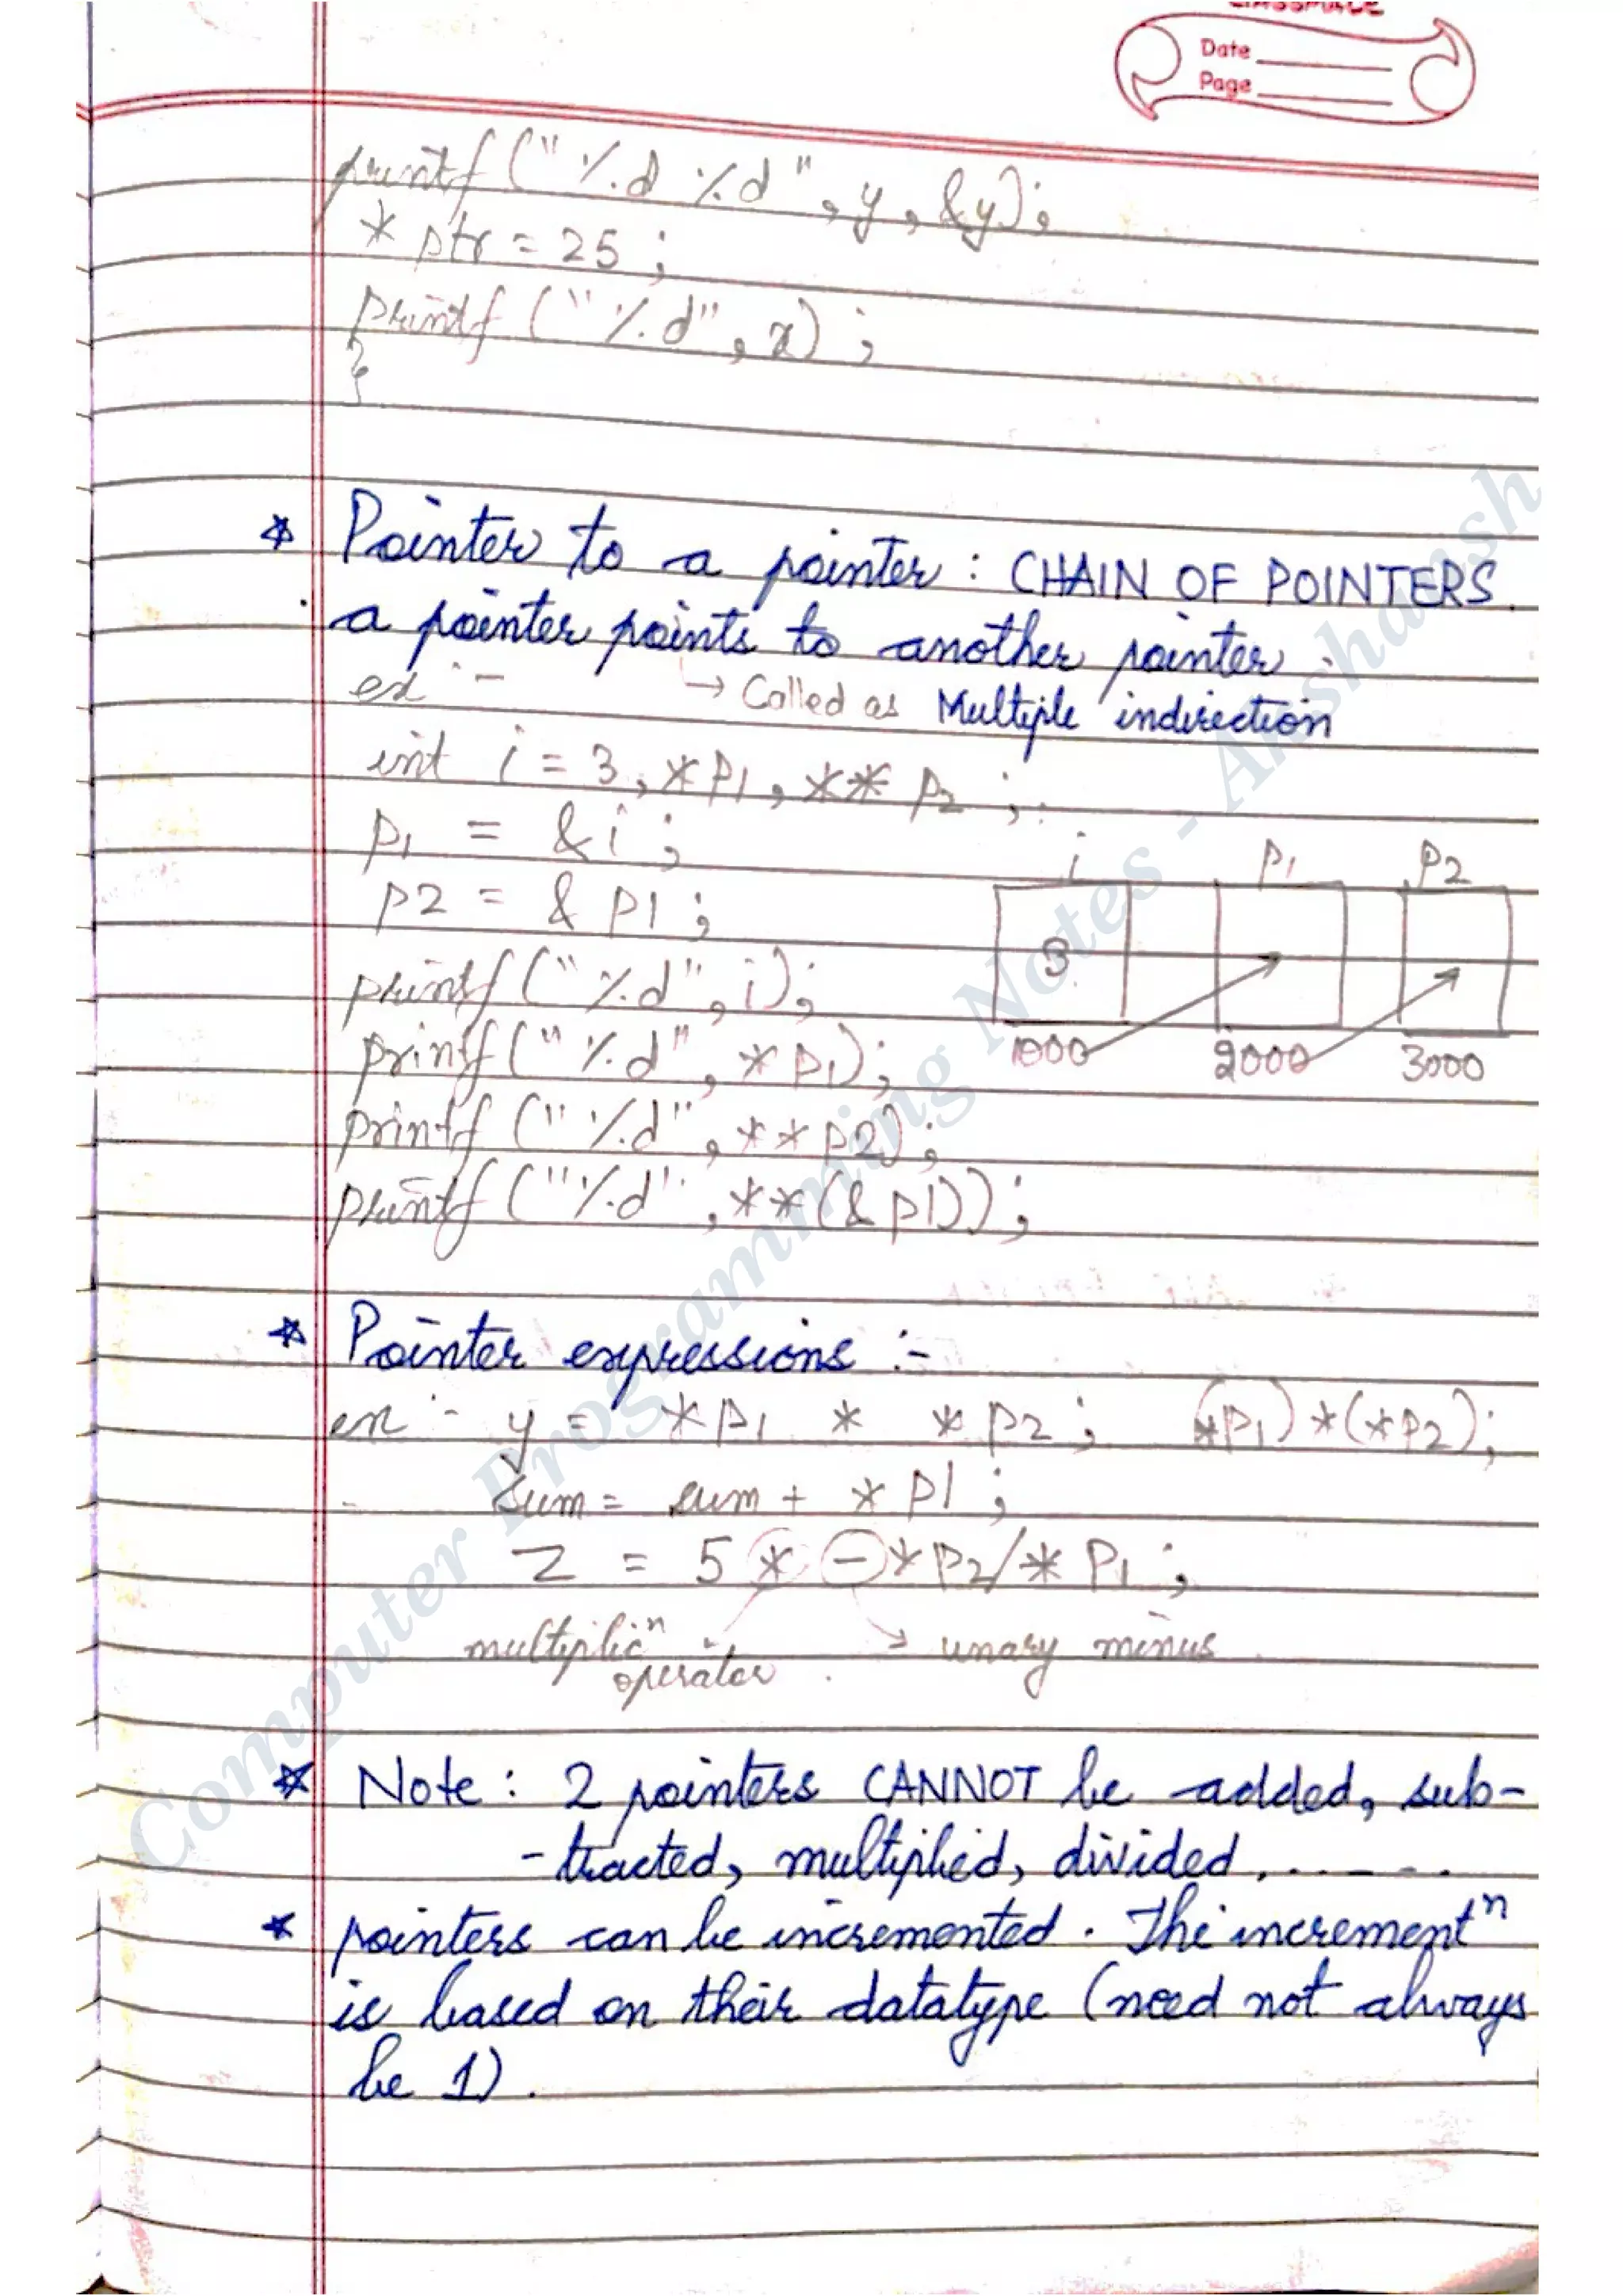 CLASSMATE
Date
Page
printf ("%d %d", y, &y);
* ptr = 25 ;
printf ("%d", x) ;
}
* Pointer to a pointer : CHAIN OF POINTERS.
a pointer points to another pointer.
ex :- → Called as Multiple indirection
int i = 3, *P1, ** P2 ;
P1 = &i ;
P2 = & P1 ;
i P1 P2
printf ("%d", i);
3
printf ("%d", *P1);
1000 2000 3000
printf ("%d", **P2);
printf ("%d", **(&P1));
* Pointer expressions :-
ex :- y = *P1 * *P2 ; (*P1)*(*P2);
sum = sum + *P1 ;
Z = 5 * - *P2/*P1 ;
multiplicⁿ operator → unary minus
* Note : 2 pointers CANNOT be added, sub-
-tracted, multiplied, divided......
* pointers can be incremented. The incrementⁿ
is based on their datatype (need not always
be 1).
Computer Programming Notes - Akshansh